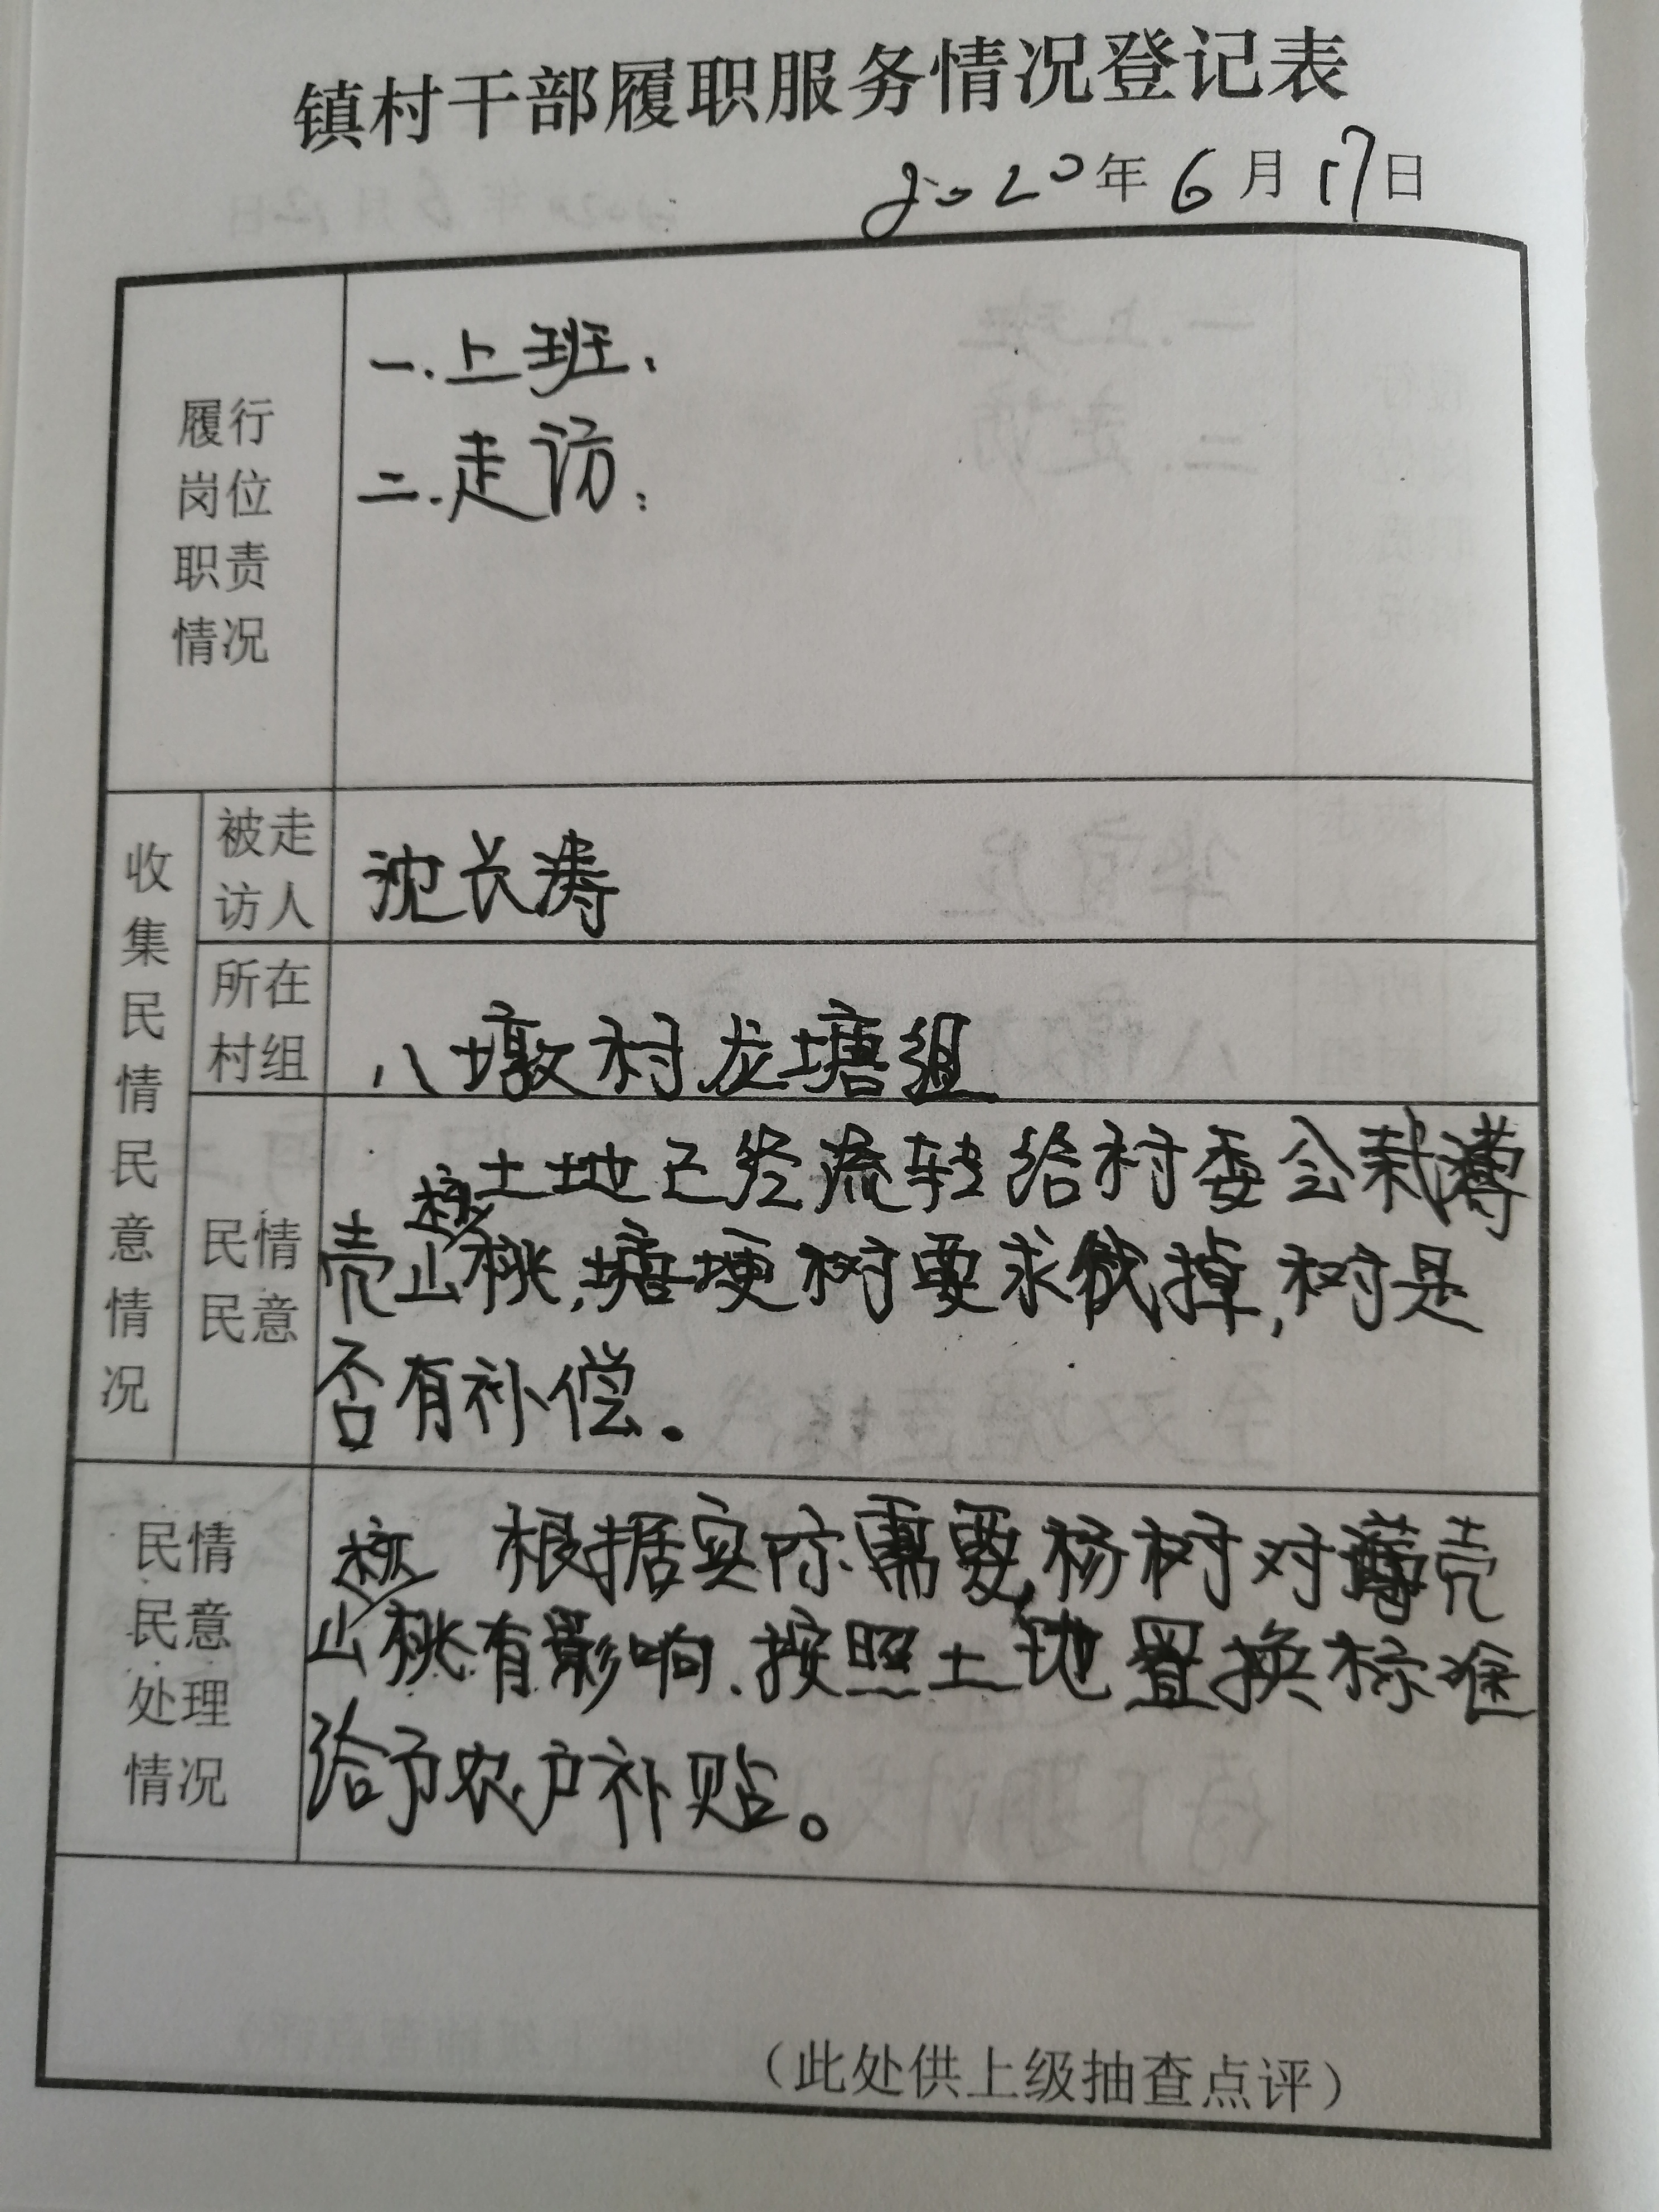 镇村干部履职服务情况登记表
2020年6月17日
履行
岗位
职责
情况
一.上班.
二.走访:
收集民情民意情况
被走
访人
沈长涛
所在
村组
八墩村龙塘组
民情
民意
土地已经流转给村委会栽薄
壳山核桃,塘埂树要求伐掉,树是
否有补偿。
民情
民意
处理
情况
根据实际需要,杨树对薄壳
山核桃有影响.按照土地置换标准
给予农户补贴。
（此处供上级抽查点评）